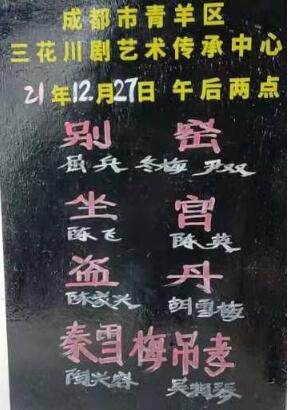 成都市青羊区
三花川剧艺术传承中心
21年12月27日 午后两点
别 窑
屈兵 冬梅 尹双
坐 宫
陈飞 陈英
盗 丹
陈家兴 胡雪梅
秦雪梅吊孝
陶兴容 吴润琴